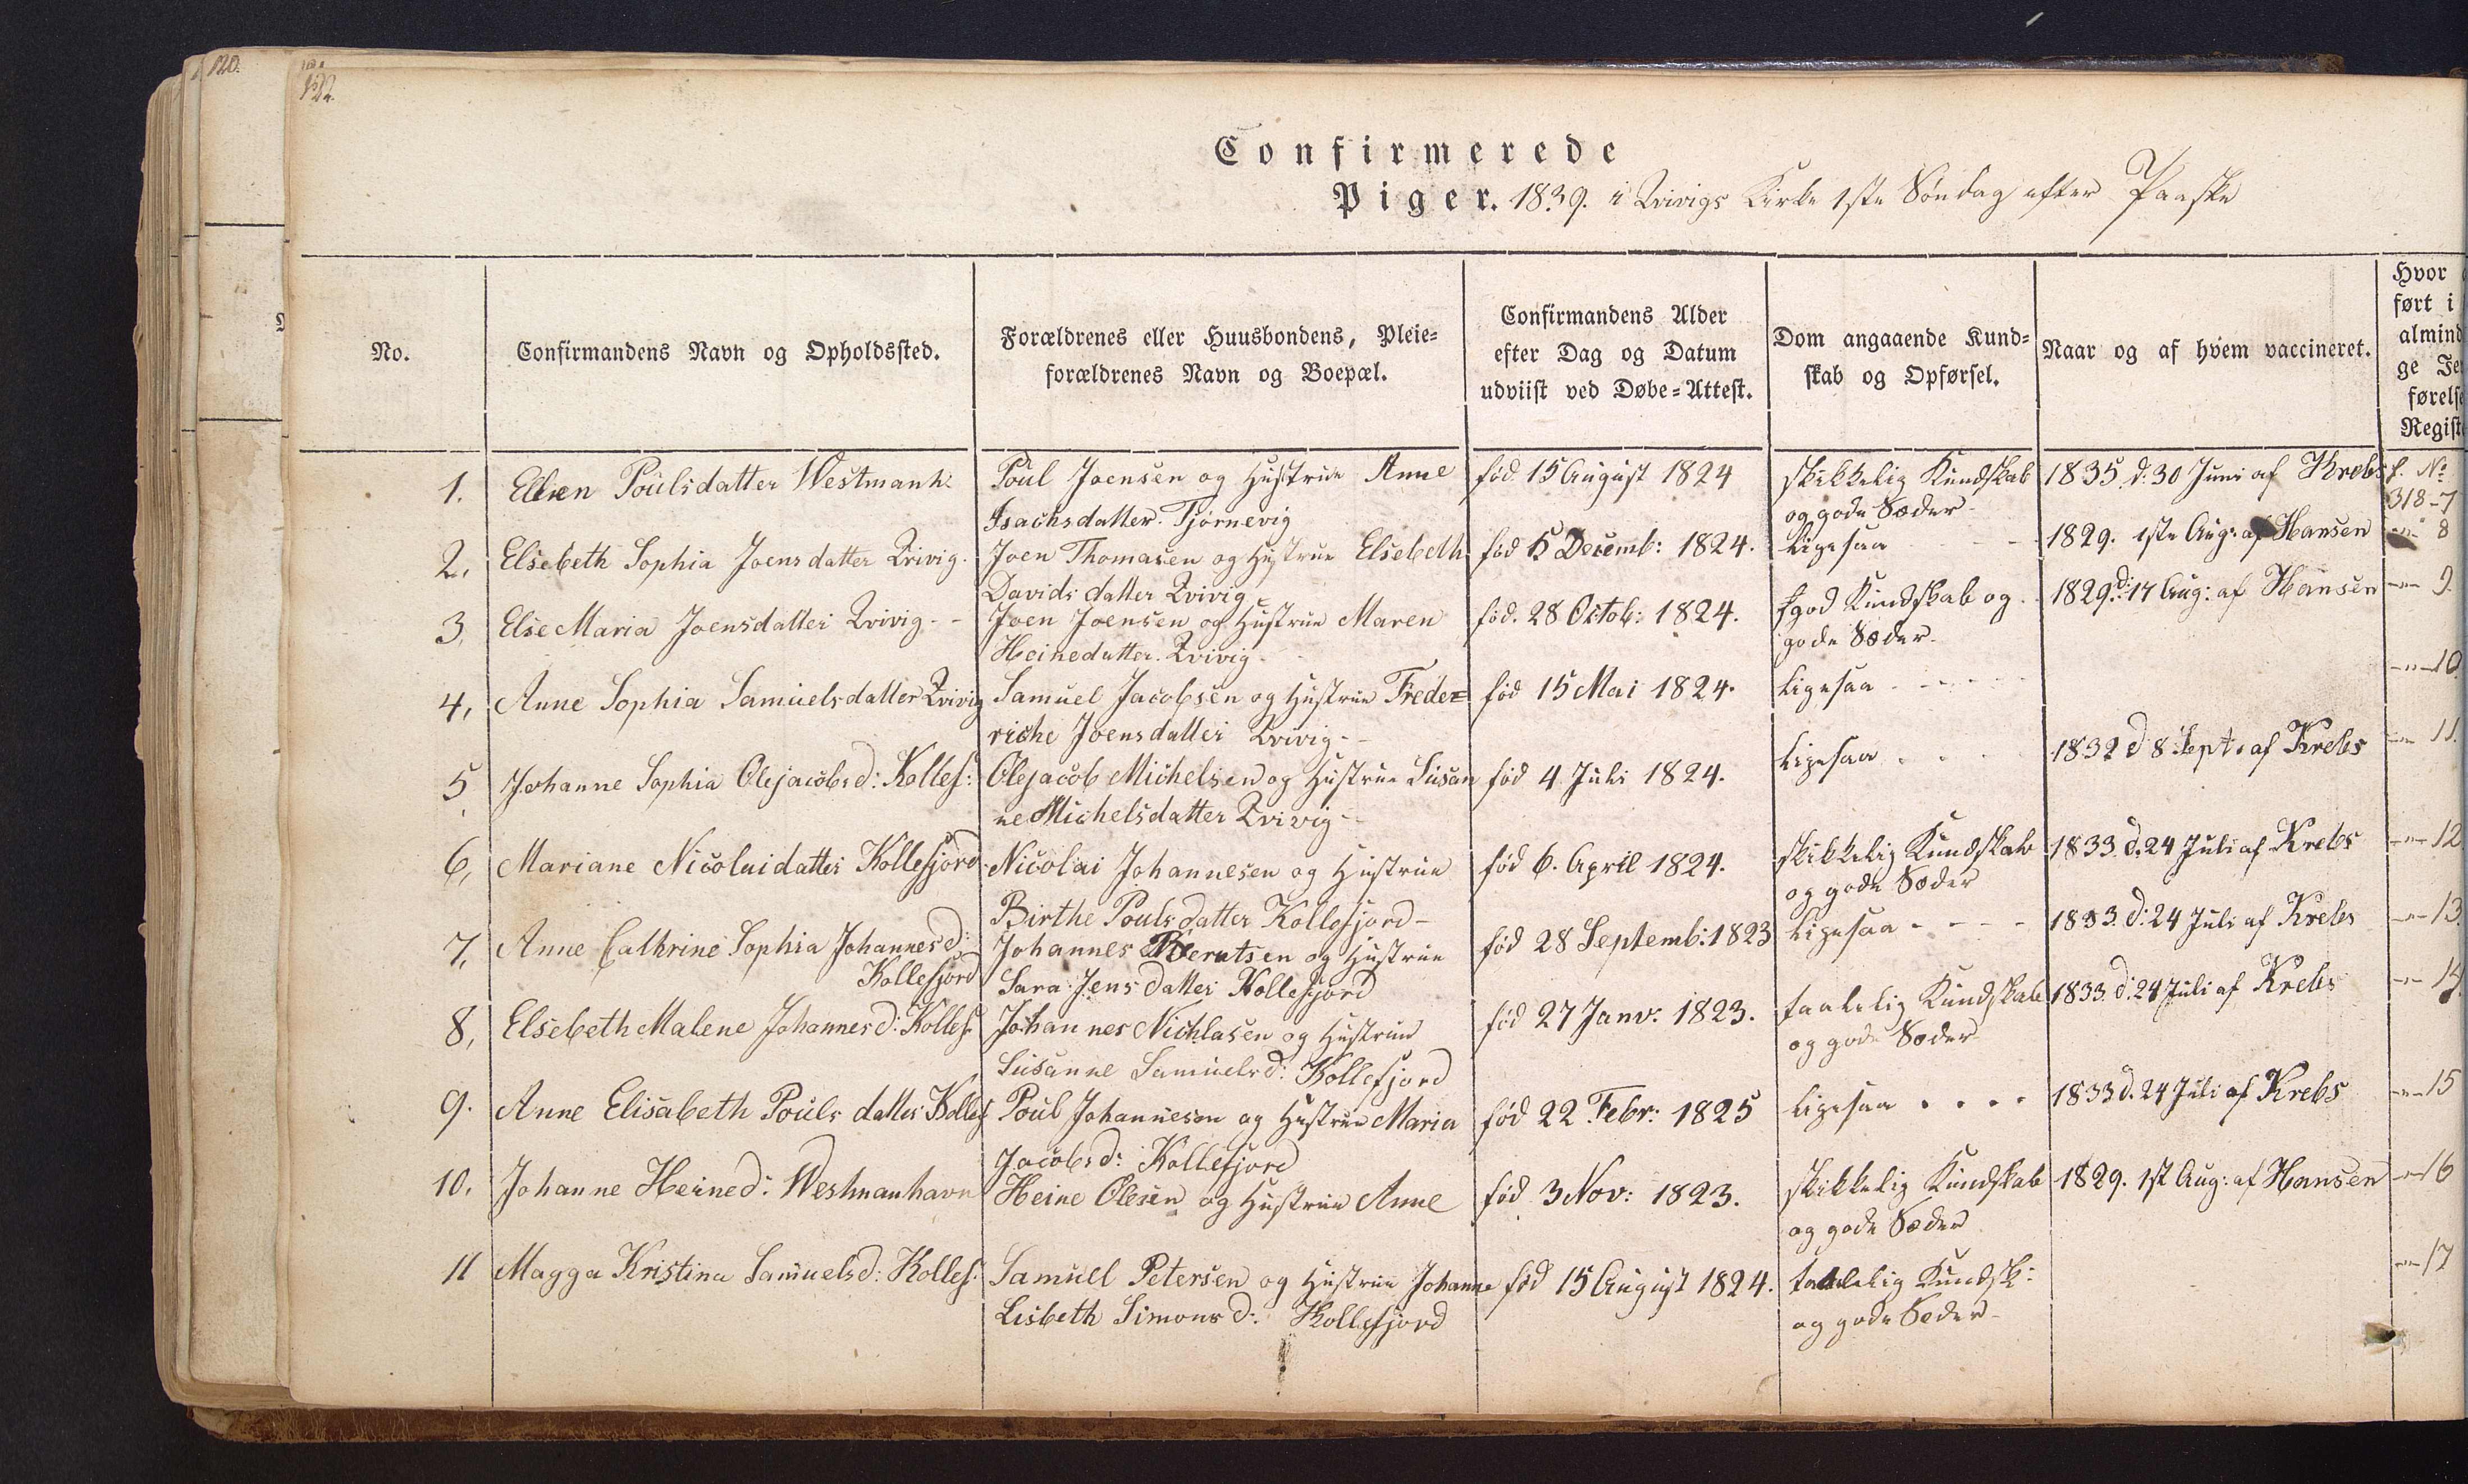 120.
122.
Confirmerede
Piger. 1839. i Qvivigs Kirke 1ste Søndag efter Paaske
No.
Confirmandens Navn og Opholdssted.
Forældrenes eller Huusbondens, Pleie=
forældrenes Navn og Boepæl.
Confirmandens Alder
efter Dag og Datum
udviist ved Døbe=Attest.
Dom angaaende Kund=
skab og Opførsel.
Naar og af hvem vaccineret.
Hvor
ført i
almind
ge Je
førels
Regist
1. Ellen Poulsdatter Westmanh: Poul Joensen og Hustrue Anne fød 15 August 1824 skikkelig Kundskab 1835 d: 30 Juni af Krebs f. No
Isachsdatter. Tjørnevig og gode Sæder 318-7
2. Elsebeth Sophia Joensdatter Qvivig. Joen Thomasen og Hustrue Elsebeth fød 15 Decemb: 1824. ligesaa 1829. 1ste Aug: af Hansen -"- 8
Davidsdatter Qvivig
3, Else Maria Joensdatter Qvivig - - Joen Joensen og Hustrue Maren fød. 28 Octob: 1824. god Kundskab og 1829. d: 17 Aug: af Hansen -"- 9.
Heinedatter. Qvivig gode Sæder.
4, Anne Sophia Samuelsdatter Qvivig Samuel Jacobsen og Hustrue Freder= fød 15 Mai 1824. ligesaa - - - - -"-10.
riche Joensdatter Qvivig - -
5 Johanne Sophia Olejacobsd: Kollef: Olejacob Michelsen og Hustrue Susan fød 4 Juli 1824. ligesaa . . . 1832 d 8 Sept. af Krebs -"- 11.
ne Michelsdatter Qvivig -
6, Mariane Nicolaidatter Kollefjord Nicolai Johannesen og Hustrue fød 6. April 1824. skikkelig Kundskab 1833. d. 24 Juli af Krebs -"-12
Birthe Poulsdatter Kollefjord - og gode Sæder
7, Anne Cathrine Sophia Johannesd: Johannes Berntsen og Hustrue fød 28 Septemb: 1823 ligesaa - - - - 1833. d: 24 Juli af Krebs -"-13.
Kollefjord Sara Jensdatter Kollefjord
8, Elsebeth Malene Johannesd: Kollef: Johannes Nichlasen og Hustrue fød 27 Janv: 1823. taalelig Kundskab 1833. d: 24 Juli af Krebs -"-14.
Susanne Samuelsd: Kollefjord og gode Sæder
9. Anne Elisabeth Poulsdatter Kollef Poul Johannesen og Hustrue Maria fød 22 Febr: 1825 ligesaa . . . . 1833 d. 24 Juli af Krebs -"-15
Jacobsd: Kollefjord
10. Johanne Heined: Westmanhavn Heine Olesen og Hustrue Anne fød 3 Nov: 1823. skikkelig Kundskab 1829. 1st Aug: af Hansen -"-16
og gode Sæder
11 Magga Kristina Samuelsd: Kollef: Samuel Petersen og Hustrue Johanne fød 15 August 1824. taalelig Kundsk: -"-17
Lisbeth Simonsd: Kollefjord og gode Sæder -